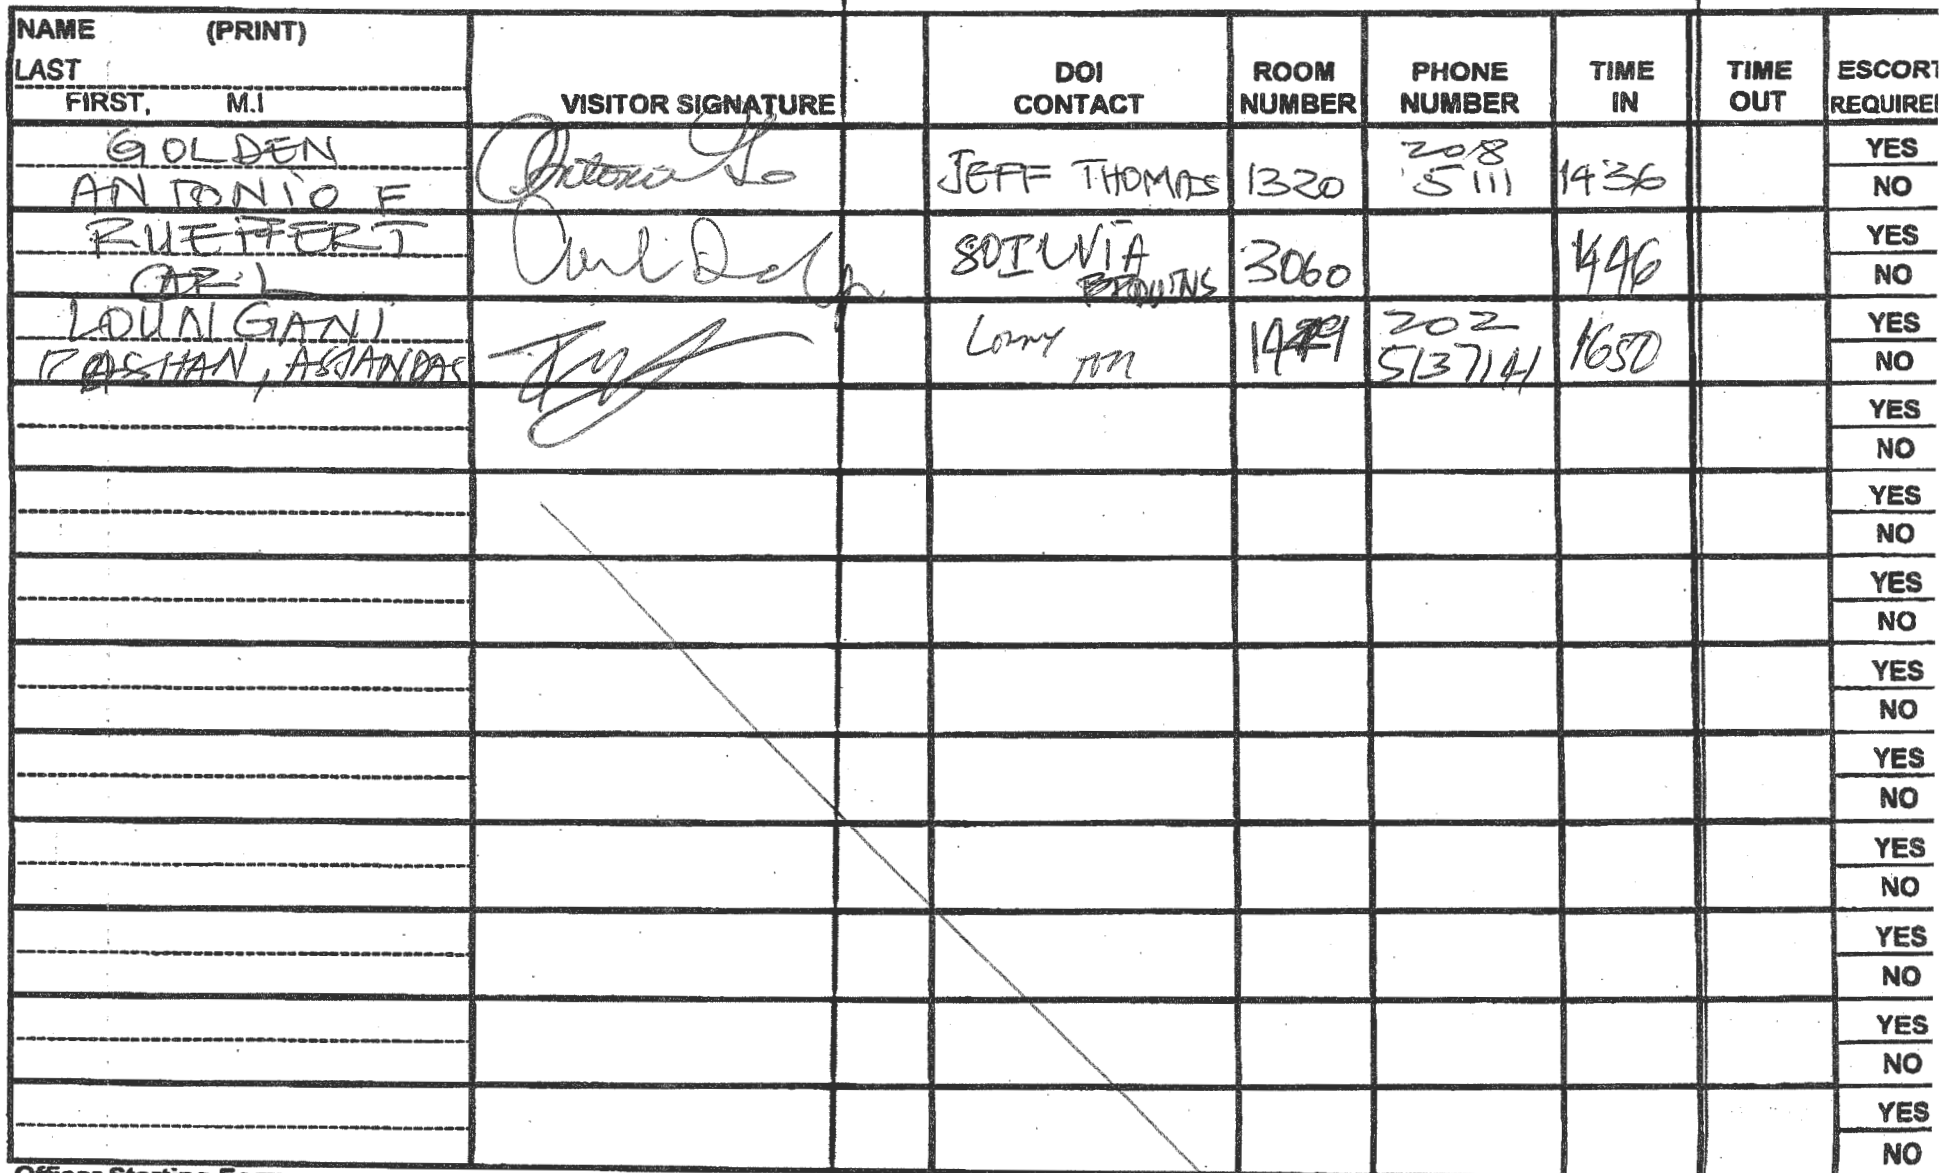 NAME (PRINT)
LAST
FIRST, M.I
VISITOR SIGNATURE
DOI
CONTACT
ROOM
NUMBER
PHONE
NUMBER
TIME
IN
TIME
OUT
ESCORT
REQUIRED
GOLDEN
ANTONIO E
Antonio Go
JEFF THOMAS
1320
208
5111
1436
YES
NO
RUEFFERT
CARL
SOILVIA
3060
1446
YES
NO
LOUNGANI
ASJANDAS
202
5137141
1650
YES
NO
YES
NO
YES
NO
YES
NO
YES
NO
YES
NO
YES
NO
YES
NO
YES
NO
YES
NO